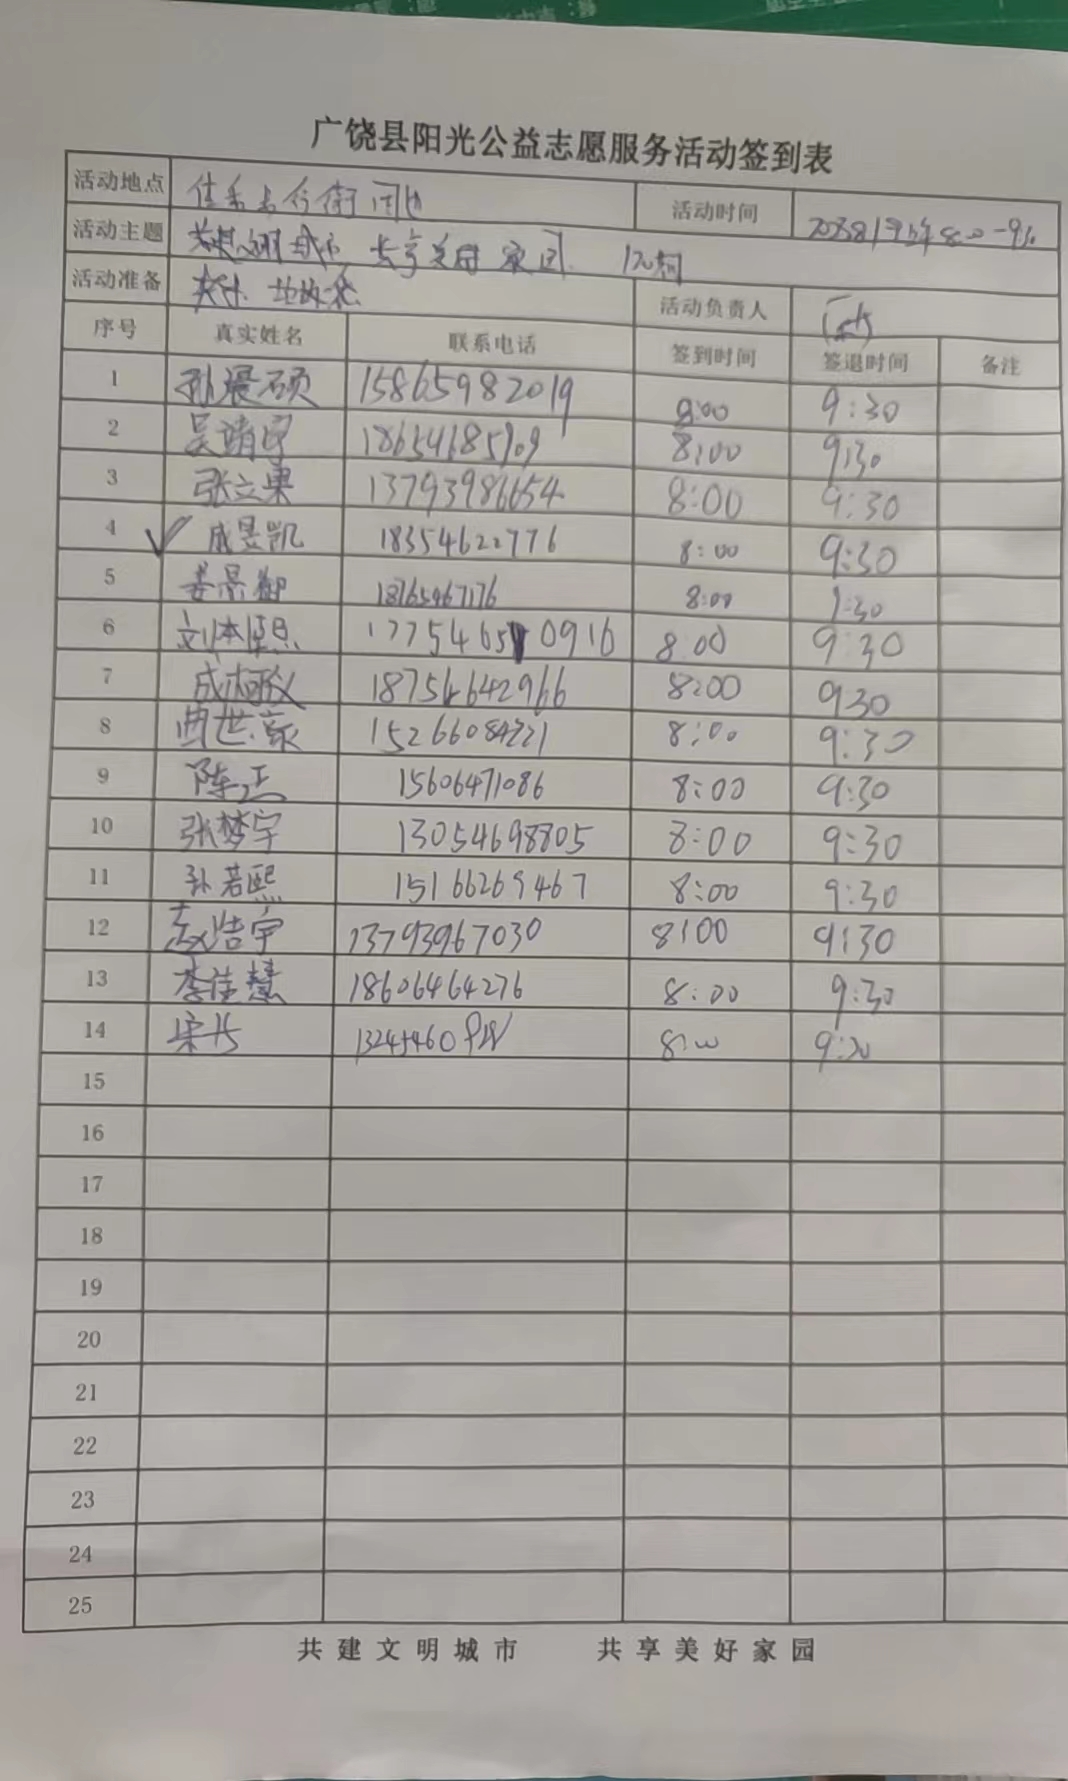 广饶县阳光公益志愿服务活动签到表
活动地点 活动时间
活动主题 共建文明城市 共享美好家园
活动准备 夹子 垃圾袋 活动负责人
序号 真实姓名 联系电话 签到时间 签退时间 备注
1 孙晨硕 15865982019 8:00 9:30
2 吴靖宇 8:00 9:30
3 张立果 13793986654 8:00 9:30
4 成昱凯 18354622776 8:00 9:30
5 姜景御 18765467176 8:00 9:30
6 17754650916 8:00 9:30
7 18754642966 8:00 930
8 曲世豪 8:00 9:30
9 陈正 15606471086 8:00 9:30
10 张梦宇 13054698805 8:00 9:30
11 孙若熙 15166269467 8:00 9:30
12 赵浩宇 13793967030 8:00 9:30
13 李佳慧 18606464276 8:00 9:30
14 8:00 9:30
15
16
17
18
19
20
21
22
23
24
25
共建文明城市 共享美好家园